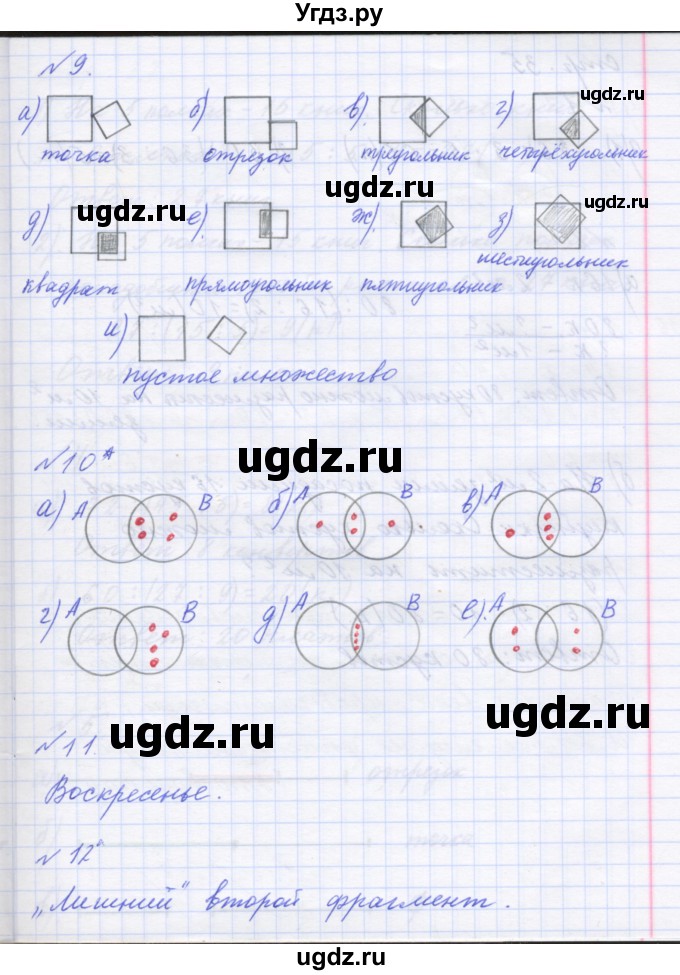 Угдз.ру
№9.
а) б) в) г)
ugdz.ru
точка отрезок треугольник четырёхугольник
ugdz.ru ugdz.ru ugdz.ru
д) е) ж) з)
шестиугольник
квадрат прямоугольник пятиугольник
и)
пустое множество
ugdz.ru
№10*
а) А В б) А В в) А В
г) А В д) А В е) А В
ugdz.ru
ugdz.ru
№11
Воскресенье.
№12
„Лишний" второй фрагмент.
ugdz.ru